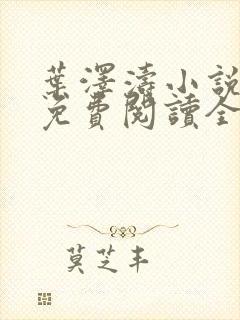 葉澤濤小說
免費閱讀全
莫芝丰